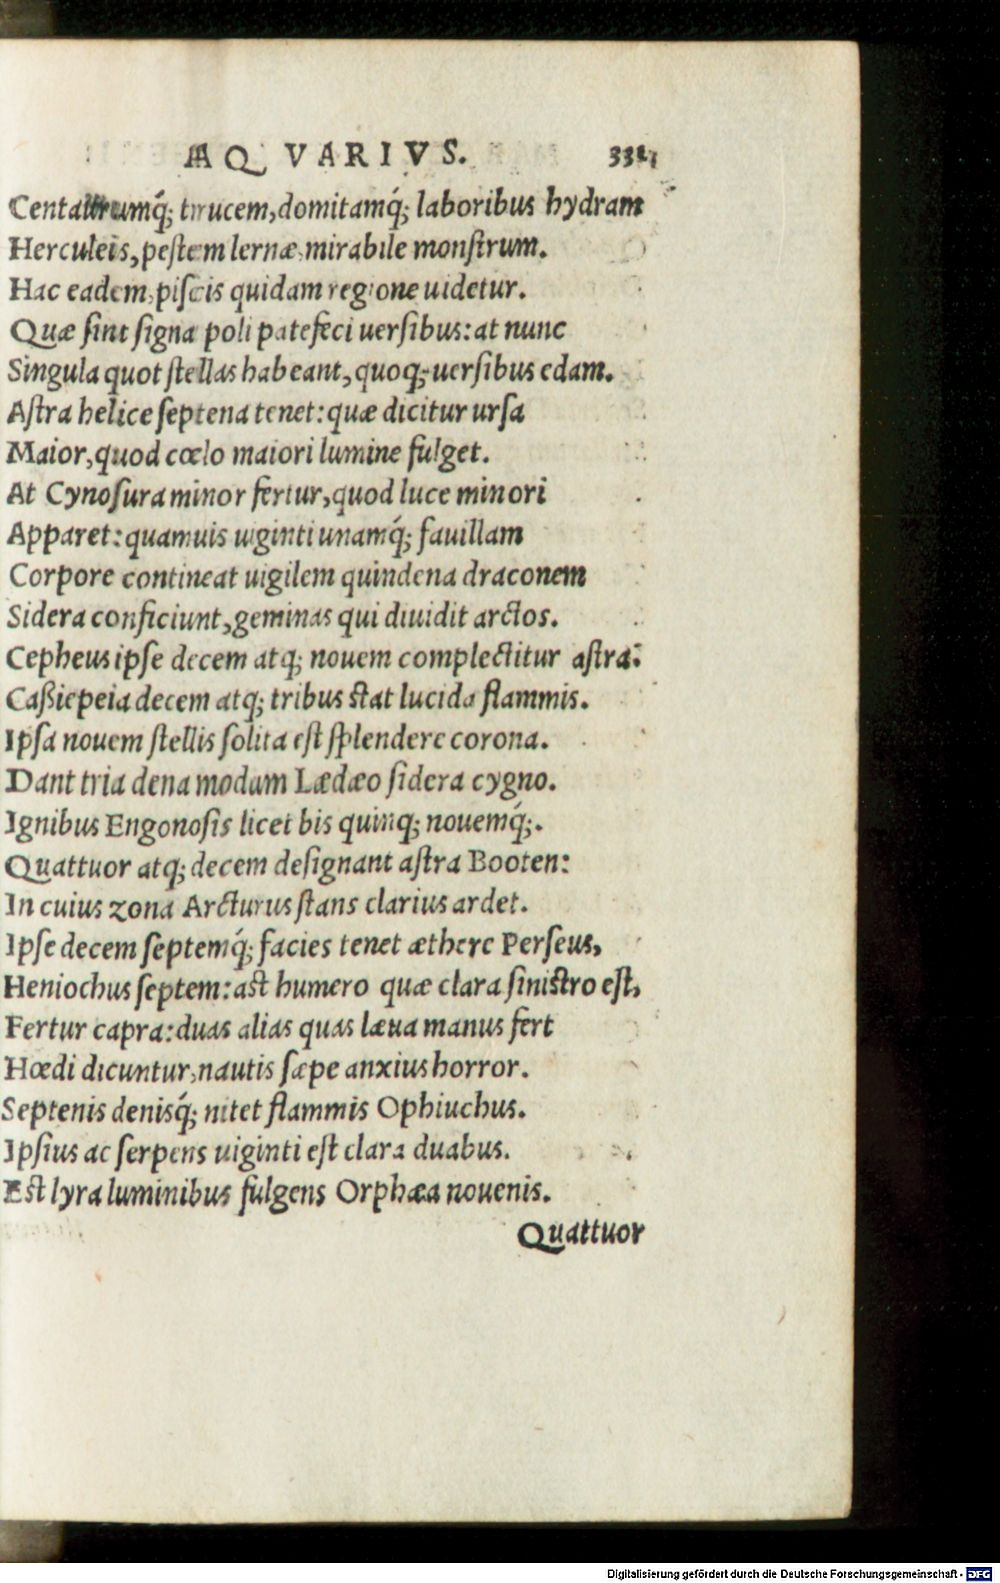 AQVARIVS.
Centaurumq́; trucem, domitamq́; laboribus hydram
Herculeis, pestem lernæ, mirabile monstrum.
Hac eadem, piscis quidam regione uidetur.
Quæ sint signa poli patefeci uersibus: at nunc
Singula quot stellas habeant, quoq; uersibus edam.
Astra helice septena tenet: quæ dicitur ursa
Maior, quod cœlo maiori lumine fulget.
At Cynosura minor fertur, quod luce minori
Apparet: quamuis uiginti unamq́; fauillam
Corpore contineat uigilem quindena draconem
Sidera conficiunt, geminas qui diuidit arctos.
Cepheus ipse decem atq; nouem complectitur astra:
Caßiepeia decem atq; tribus stat lucida flammis.
Ipsa nouem stellis solita est splendere corona.
Dant tria dena modum Lædæo sidera cygno.
Ignibus Engonosis licet bis quinq; nouemq́;.
Quattuor atq; decem designant astra Booten:
In cuius zona Arcturus stans clarius ardet.
Ipse decem septemq́; facies tenet æthere Perseus,
Heniochus septem: ast humero quæ clara sinistro est,
Fertur capra: duas alias quas læua manus fert
Hœdi dicuntur, nautis sæpe anxius horror.
Septenis denisq́; nitet flammis Ophiuchus.
Ipsius ac serpens uiginti est clara duabus.
Est lyra luminibus fulgens Orphæa nouenis.
Quattuor
Digitalisierung gefördert durch die Deutsche Forschungsgemeinschaft - DFG